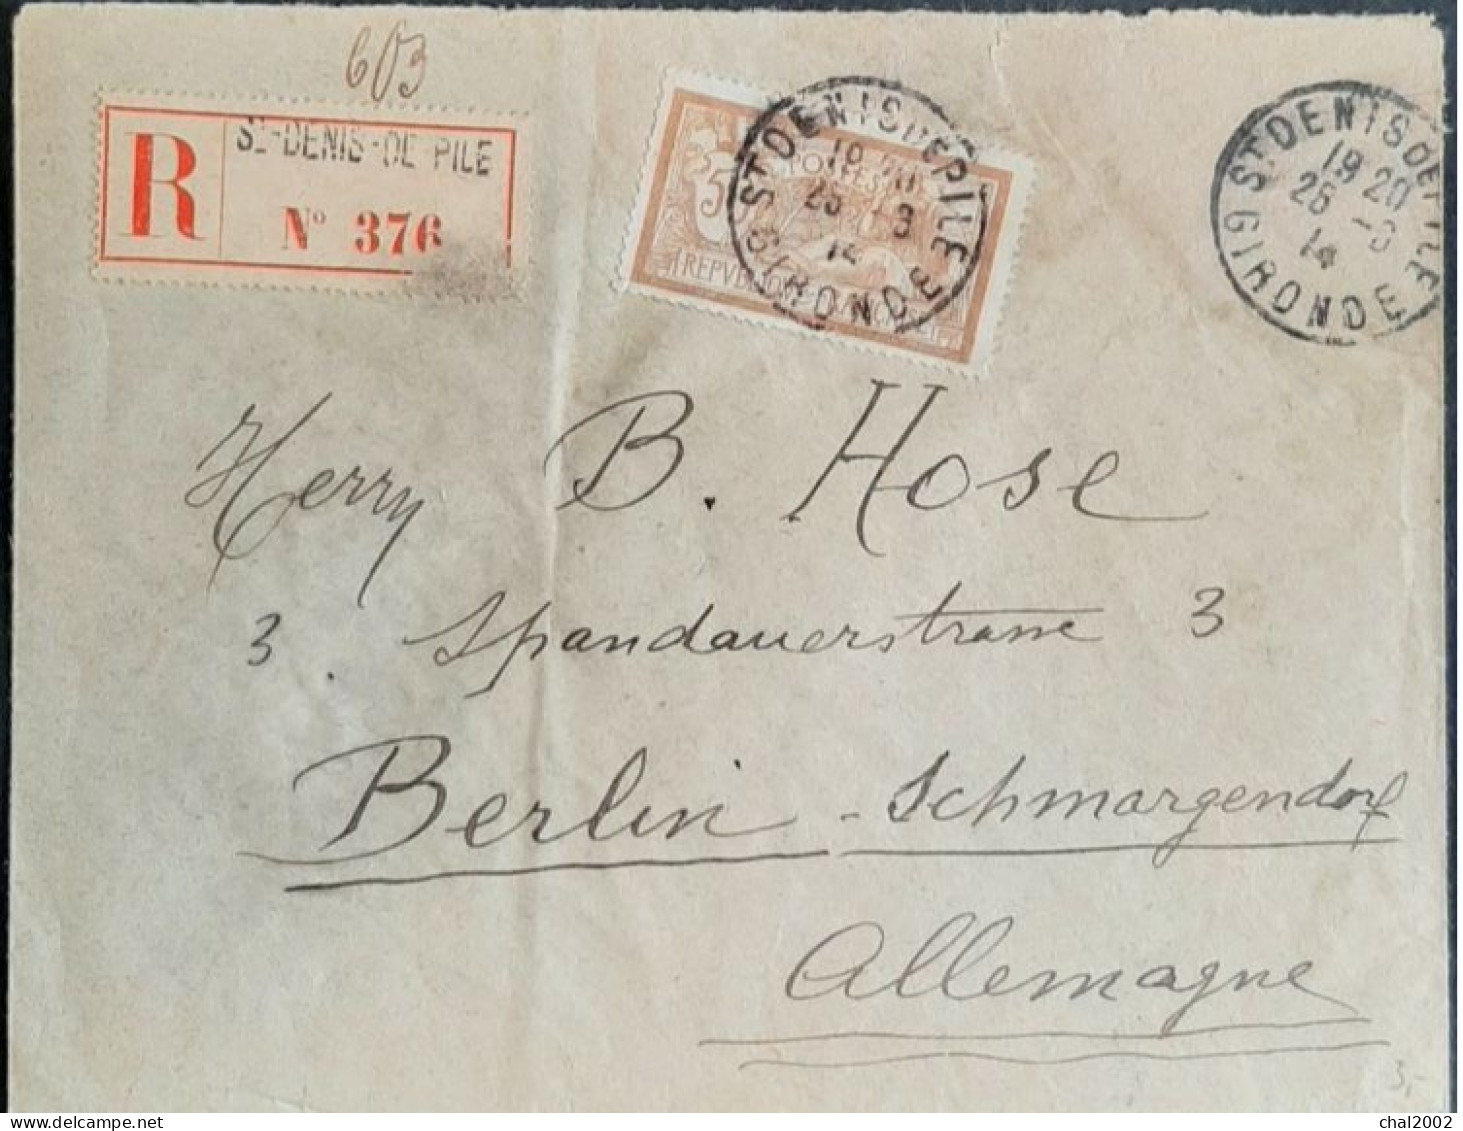 603
R ST-DENIS-DE-PILE
N° 376
ST DENIS DE PILE
19 20
GIRONDE
14
50
POSTES
ST DENIS DE PILE
19 20
14
GIRONDE
Herry B. Hose
3 Spandauerstrasse 3
Berlin - Schmargendorf
Allemagne
3,-
chal2002